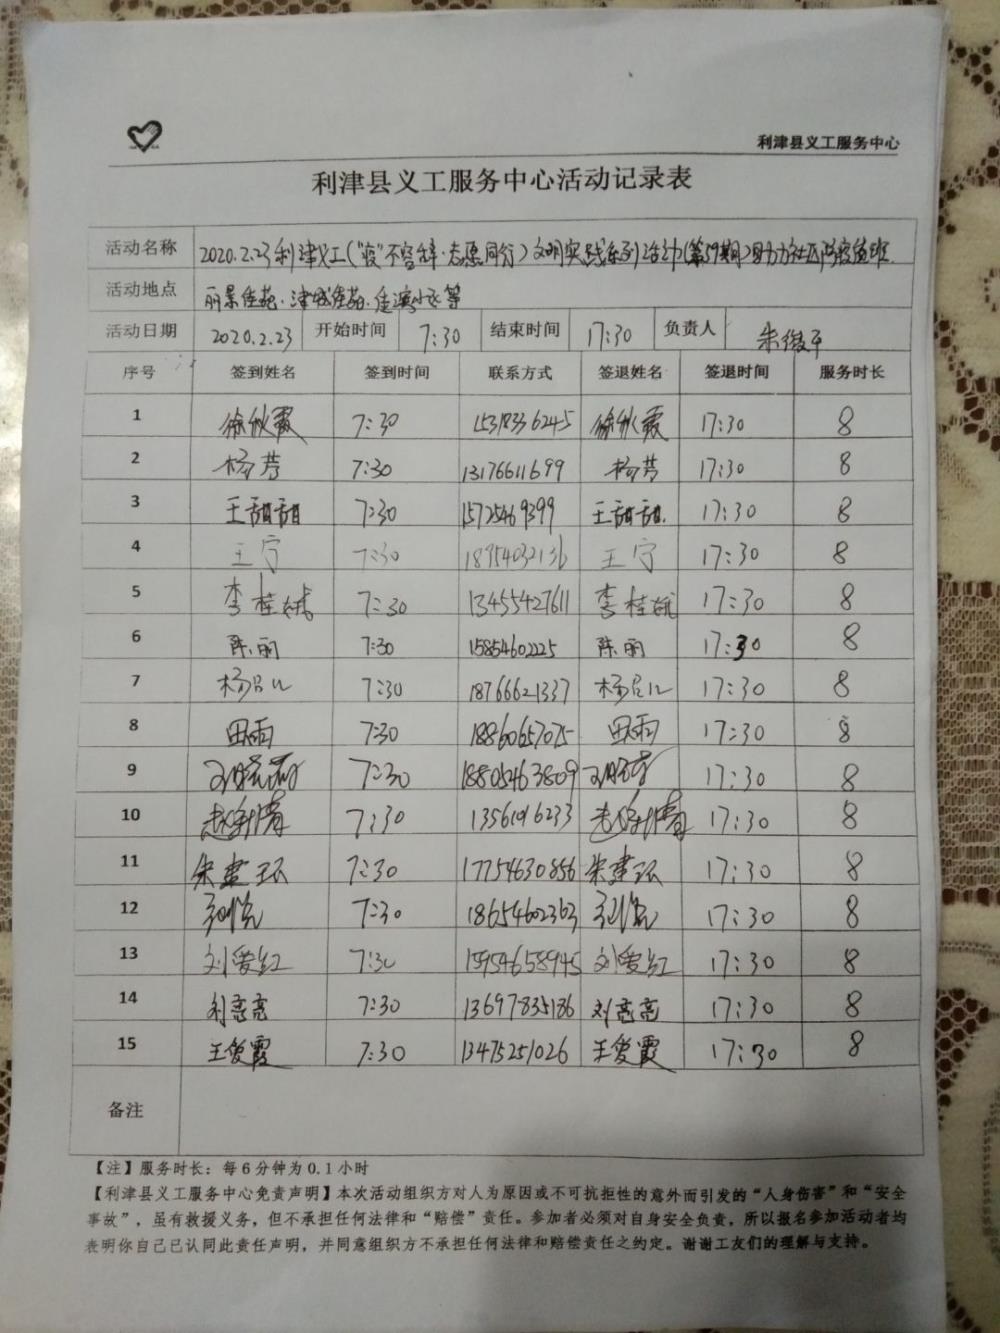 利津县义工服务中心
利津县义工服务中心活动记录表
活动名称 2020.2.23利津义工("疫"不容辞·志愿同行)文明实践系列活动(第59期)助力社区防疫值班
活动地点 丽景佳苑.津城佳苑.佳滨小区等
活动日期 2020.2.23 开始时间 7:30 结束时间 17:30 负责人 朱俊平
序号 签到姓名 签到时间 联系方式 签退姓名 签退时间 服务时长
1 徐秋霞 7:30 15318336245 徐秋霞 17:30 8
2 杨芳 7:30 13176611699 杨芳 17:30 8
3 王甜甜 7:30 15725469399 王甜甜 17:30 8
4 王宁 7:30 18954032136 王宁 17:30 8
5 李桂娥 7:30 13455427611 李桂娥 17:30 8
6 陈丽 7:30 15854602225 陈丽 17:30 8
7 7:30 18766621337 17:30 8
8 田雨 7:30 18860657075 田雨 17:30 8
9 7:30 18805463809 17:30 8
10 7:30 13561916233 17:30 8
11 朱建环 7:30 17754630856 朱建环 17:30 8
12 7:30 18654602363 17:30 8
13 刘爱红 7:30 15954658945 刘爱红 17:30 8
14 刘亮亮 7:30 13697835186 刘亮亮 17:30 8
15 王俊霞 7:30 13475251026 王俊霞 17:30 8
备注
【注】服务时长：每6分钟为0.1小时
【利津县义工服务中心免责声明】本次活动组织方对人为原因或不可抗拒性的意外而引发的“人身伤害”和“安全
事故”，虽有救援义务，但不承担任何法律和“赔偿”责任。参加者必须对自身安全负责，所以报名参加活动者均
表明你自己已认同此责任声明，并同意组织方不承担任何法律和赔偿责任之约定。谢谢工友们的理解与支持。